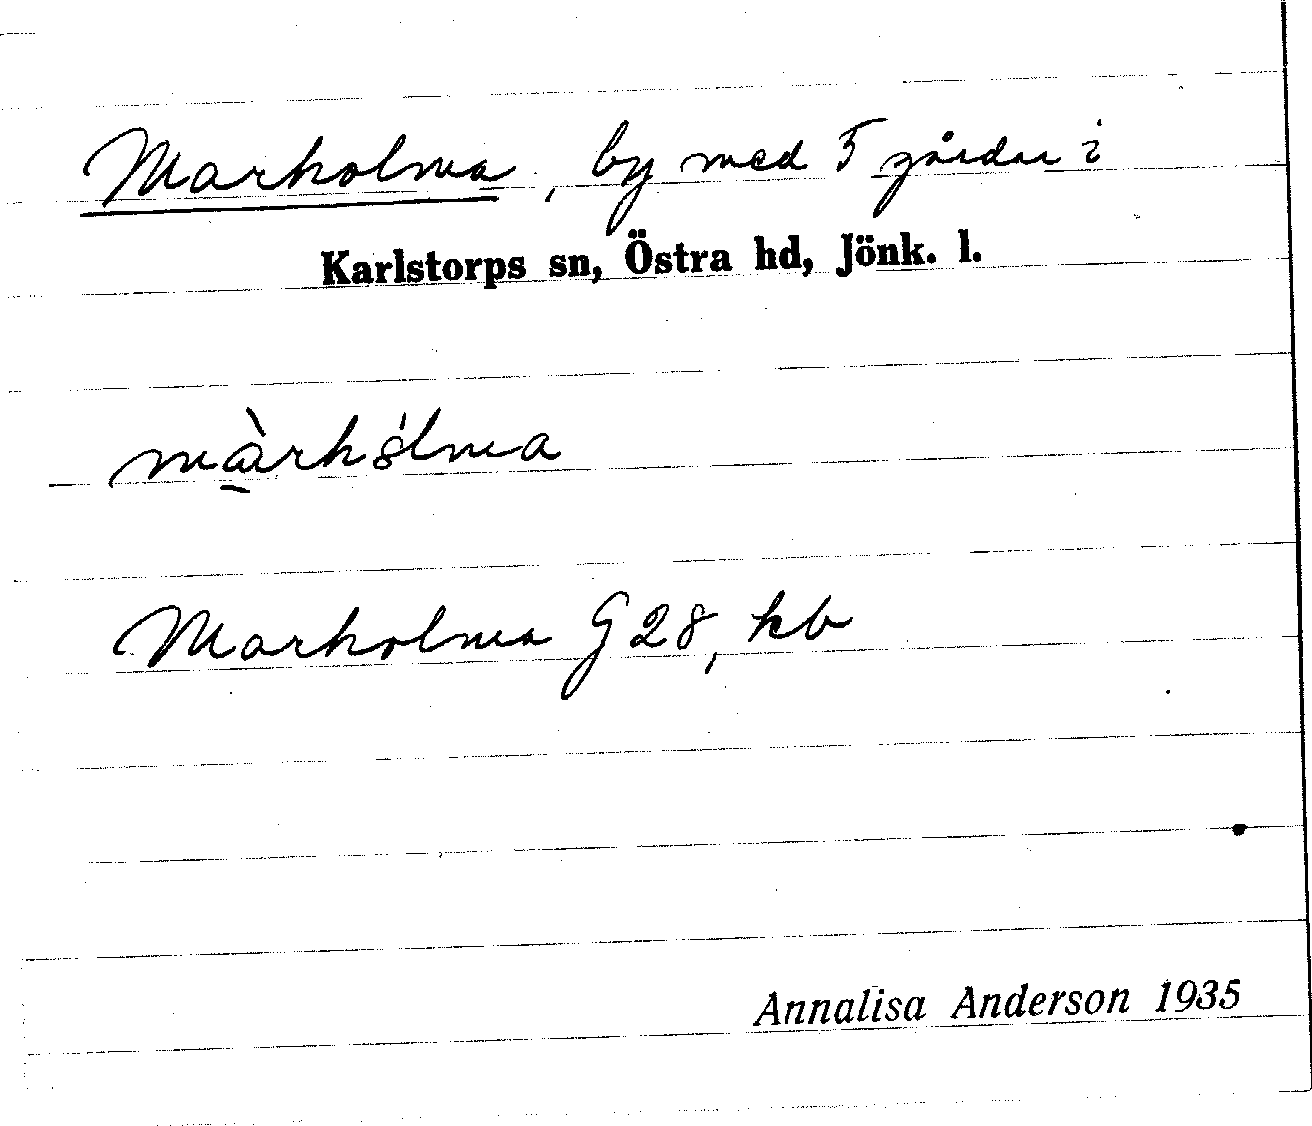 Marholma, by med 5 gårdar i
Karlstorps sn, Östra hd, Jönk. l.
màrhólma
Marholma G 28, kb
Annalisa Anderson 1935